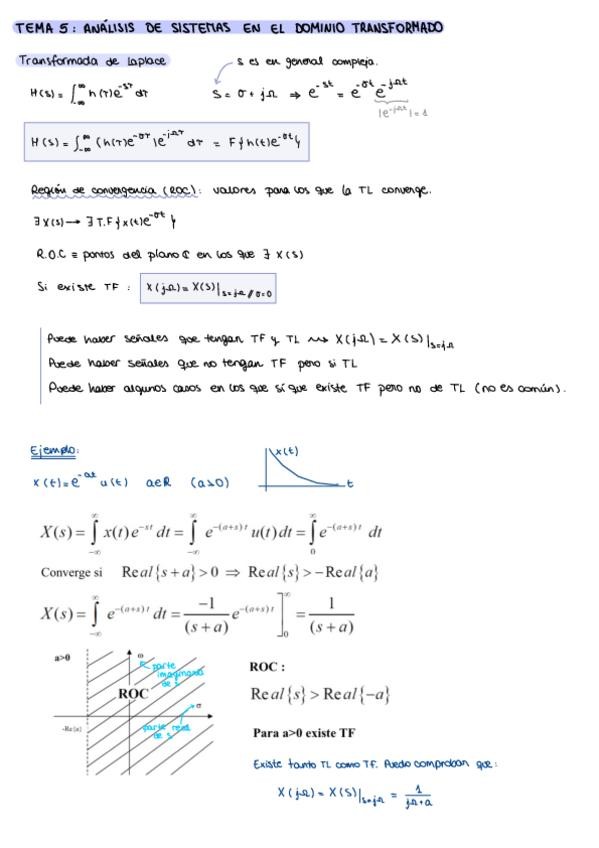 TEMA 5: ANÁLISIS DE SISTEMAS EN EL DOMINIO TRANSFORMADO
Transformada de Laplace
s es en general compleja.
H(s) = ∫_{-∞}^{∞} h(τ)e^{-sτ} dτ
s = σ + jΩ ⇒ e^{-st} = e^{-σt} e^{-jΩt}
|e^{-jΩt}| = 1
H(s) = ∫_{-∞}^{∞} (h(τ)e^{-στ})e^{-jΩτ} dτ = F{h(t)e^{-σt}}
Región de convergencia (ROC): valores para los que la TL converge.
∃ X(s) → ∃ T.F {x(t)e^{-σt}}
R.O.C ≡ puntos del plano ℂ en los que ∃ X(s)
Si existe TF : X(jΩ) = X(s)|_{s=jΩ // σ=0}
Puede haber señales que tengan TF y TL ⇝ X(jΩ) = X(s)|_{s=jΩ}
Puede haber señales que no tengan TF pero si TL
Puede haber algunos casos en los que sí que existe TF pero no de TL (no es común).
Ejemplo:
x(t) = e^{-at} u(t) a∈R (a>0)
x(t)
t
X(s) = ∫_{-∞}^{∞} x(t)e^{-st} dt = ∫_{-∞}^{∞} e^{-(a+s)t} u(t)dt = ∫_{0}^{∞} e^{-(a+s)t} dt
Converge si Real{s+a} > 0 ⇒ Real{s} > -Real{a}
X(s) = ∫_{-∞}^{∞} e^{-(a+s)t} dt = -1/(s+a) e^{-(a+s)t} ]_{0}^{∞} = 1/(s+a)
a>0
ω
parte
imaginaria
de s
ROC
σ
-Re{a}
parte real
de s
ROC :
Real{s} > Real{-a}
Para a>0 existe TF
Existe tanto TL como TF. Puedo comprobar que:
X(jΩ) = X(s)|_{s=jΩ} = 1/(jΩ+a)